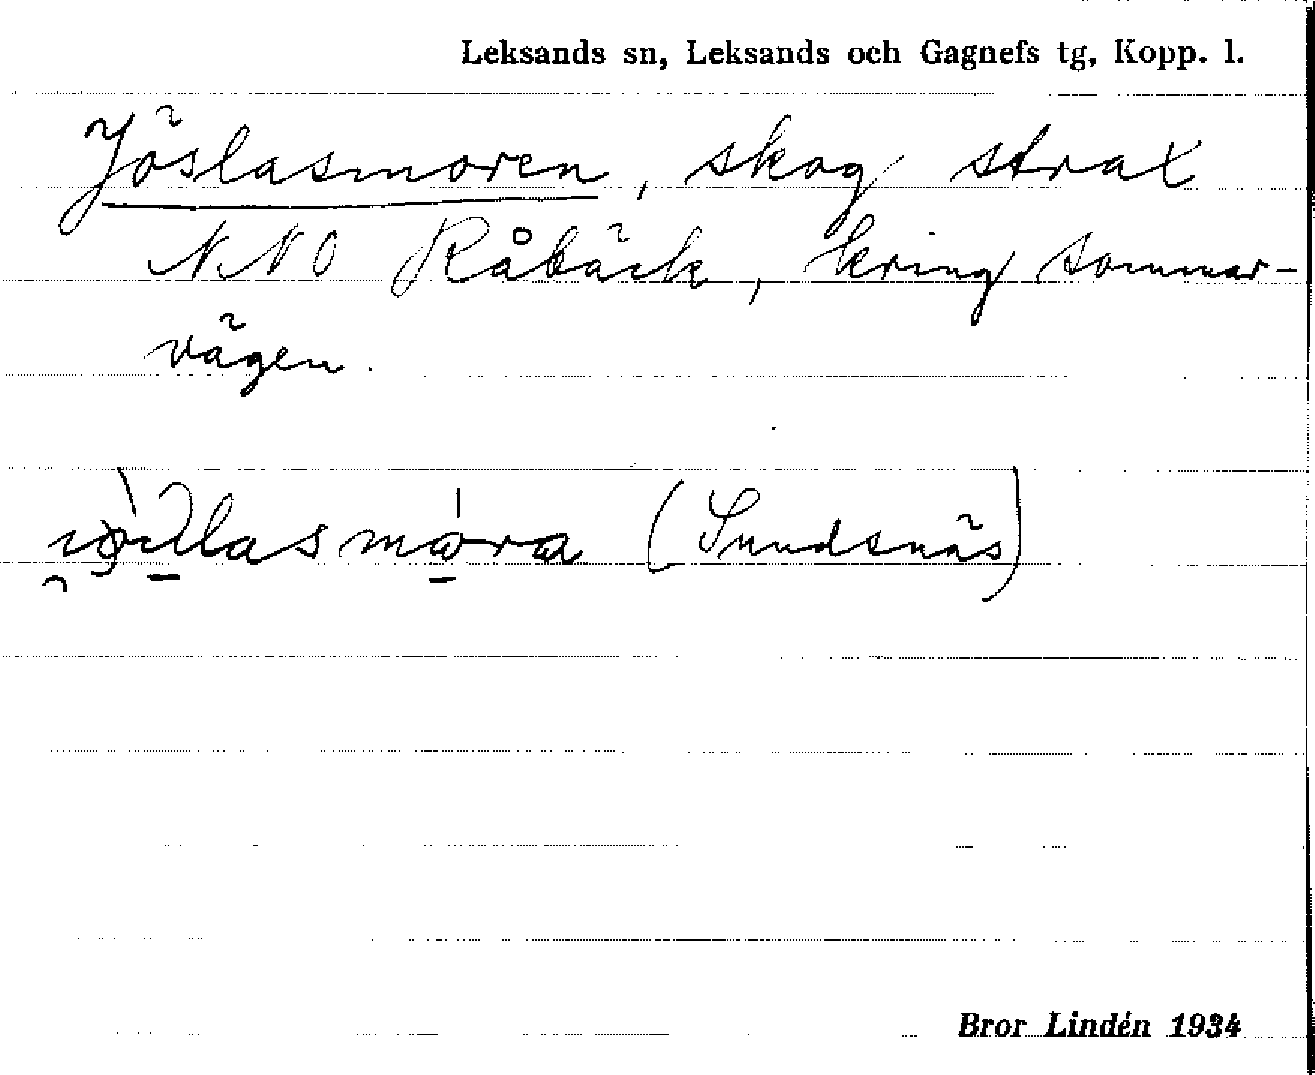 Leksands sn, Leksands och Gagnefs tg, Kopp. l.
Jöslasmoren, skog strax
N.N O Råbäck, kring sommar-
vägen.
(Sundsnäs)
Bror Lindén 1934